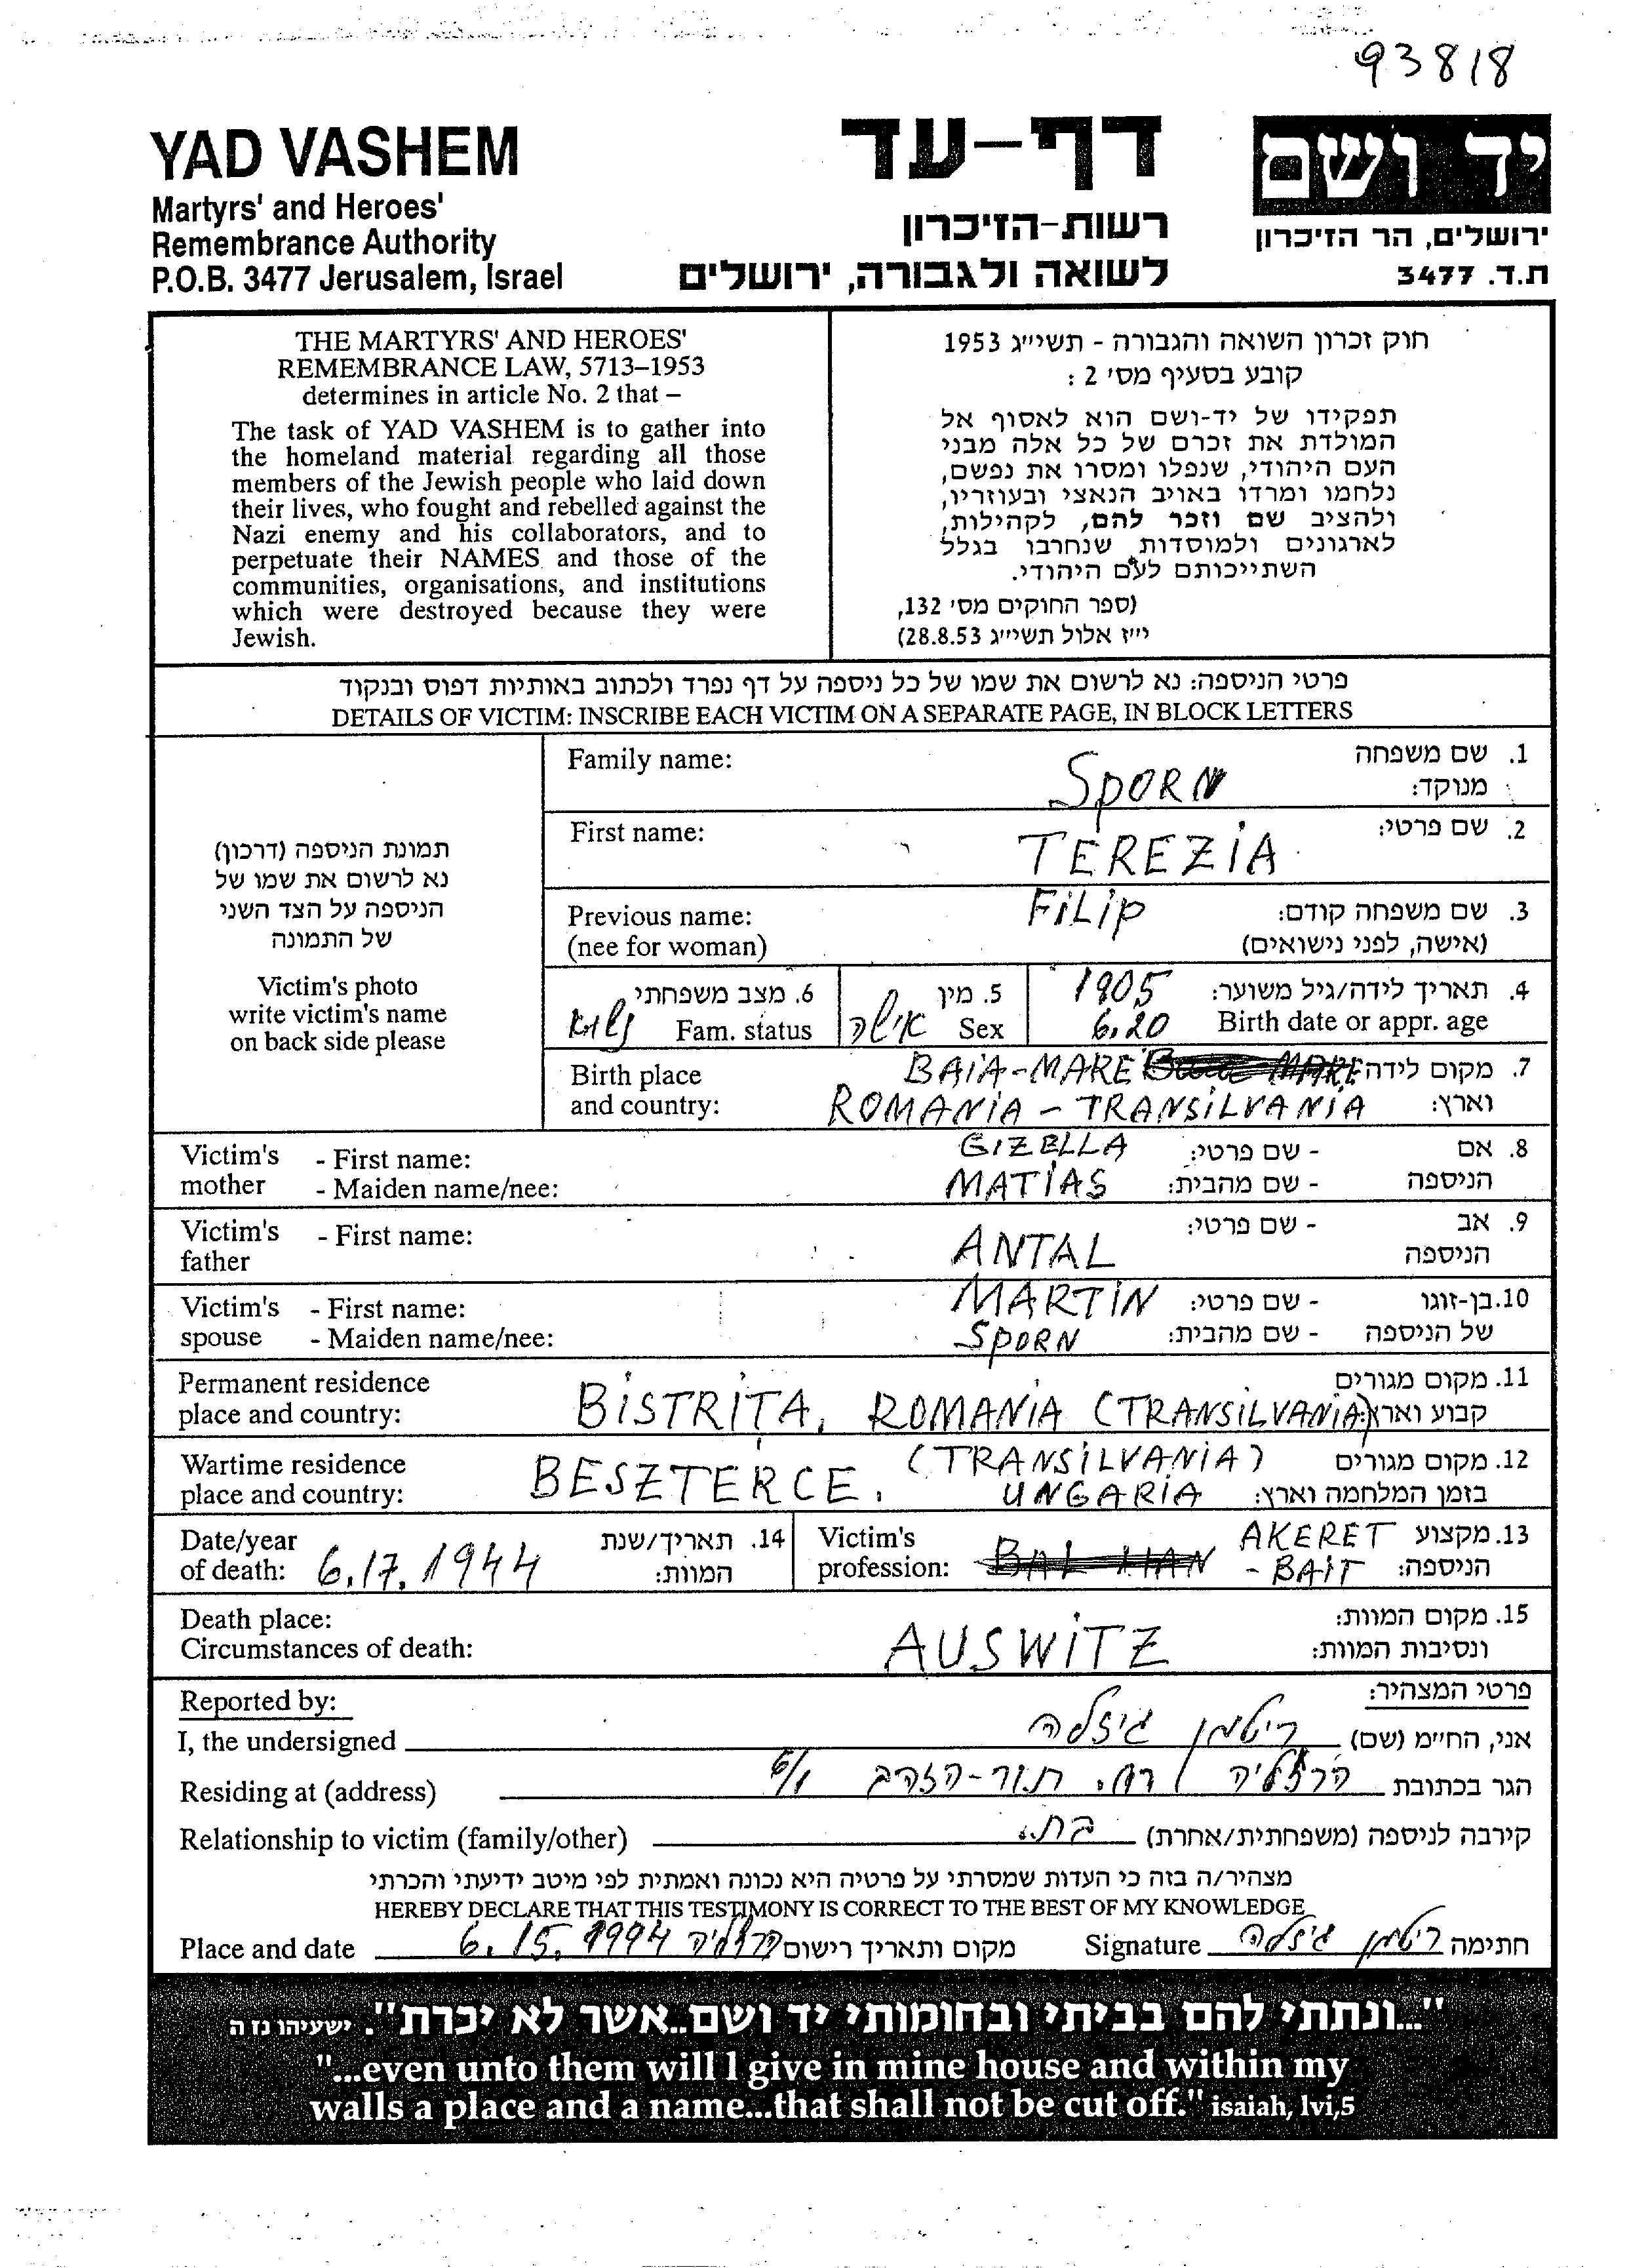 93818
YAD VASHEM
Martyrs' and Heroes'
Remembrance Authority
P.O.B. 3477 Jerusalem, Israel
דף-עד
רשות-הזיכרון
לשואה ולגבורה, ירושלים
יד ושם
ירושלים, הר הזיכרון
ת.ד. 3477
THE MARTYRS' AND HEROES'
REMEMBRANCE LAW, 5713–1953
determines in article No. 2 that –
The task of YAD VASHEM is to gather into
the homeland material regarding all those
members of the Jewish people who laid down
their lives, who fought and rebelled against the
Nazi enemy and his collaborators, and to
perpetuate their NAMES and those of the
communities, organisations, and institutions
which were destroyed because they were
Jewish.
חוק זכרון השואה והגבורה - תשי״ג 1953
קובע בסעיף מס' 2 :
תפקידו של יד-ושם הוא לאסוף אל
המולדת את זכרם של כל אלה מבני
העם היהודי, שנפלו ומסרו את נפשם,
נלחמו ומרדו באויב הנאצי ובעוזריו,
ולהציב שם וזכר להם, לקהילות,
לארגונים ולמוסדות שנחרבו בגלל
השתייכותם לעם היהודי.
(ספר החוקים מס' 132,
י״ז אלול תשי״ג 28.8.53)
פרטי הניספה: נא לרשום את שמו של כל ניספה על דף נפרד ולכתוב באותיות דפוס ובנקוד
DETAILS OF VICTIM: INSCRIBE EACH VICTIM ON A SEPARATE PAGE, IN BLOCK LETTERS
תמונת הניספה (דרכון)
נא לרשום את שמו של
הניספה על הצד השני
של התמונה
Victim's photo
write victim's name
on back side please
Family name: SPORN 1. שם משפחה
מנוקד:
First name: TEREZIA 2. שם פרטי:
Previous name: FILIP 3. שם משפחה קודם:
(nee for woman) (אישה, לפני נישואים)
6. מצב משפחתי 5. מין 1905 4. תאריך לידה/גיל משוער:
Fam. status אישה Sex 6.20 Birth date or appr. age
Birth place BAIA-MARE 7. מקום לידה
and country: ROMANIA – TRANSILVANIA וארץ:
Victim's - First name: GIZELLA - שם פרטי: 8. אם
mother - Maiden name/nee: MATIAS - שם מהבית: הניספה
Victim's - First name: ANTAL - שם פרטי: 9. אב
father הניספה
Victim's - First name: MARTIN - שם פרטי: 10. בן-זוגו
spouse - Maiden name/nee: SPORN - שם מהבית: של הניספה
Permanent residence 11. מקום מגורים
place and country: BISTRITA, ROMANIA (TRANSILVANIA) קבוע וארץ:
Wartime residence (TRANSILVANIA) 12. מקום מגורים
place and country: BESZTERCE, UNGARIA בזמן המלחמה וארץ:
Date/year 14. תאריך/שנת Victim's AKERET 13. מקצוע
of death: 6.17.1944 המוות: profession: - BAIT הניספה:
Death place: AUSWITZ 15. מקום המוות:
Circumstances of death: ונסיבות המוות:
Reported by: פרטי המצהיר:
I, the undersigned ריטמן גיזלה אני, החי״מ (שם)
Residing at (address) הרצליה רח. תור-הזהב 6/1 הגר בכתובת
Relationship to victim (family/other) בת. קירבה לניספה (משפחתית/אחרת)
מצהיר/ה בזה כי העדות שמסרתי על פרטיה היא נכונה ואמתית לפי מיטב ידיעתי והכרתי
HEREBY DECLARE THAT THIS TESTIMONY IS CORRECT TO THE BEST OF MY KNOWLEDGE
Place and date 6.15.1994 הרצליה מקום ותאריך רישום Signature ריטמן גיזלה חתימה
"...ונתתי להם בביתי ובחומותי יד ושם..אשר לא יכרת". ישעיהו נז ה
"...even unto them will I give in mine house and within my
walls a place and a name...that shall not be cut off." isaiah, lvi,5